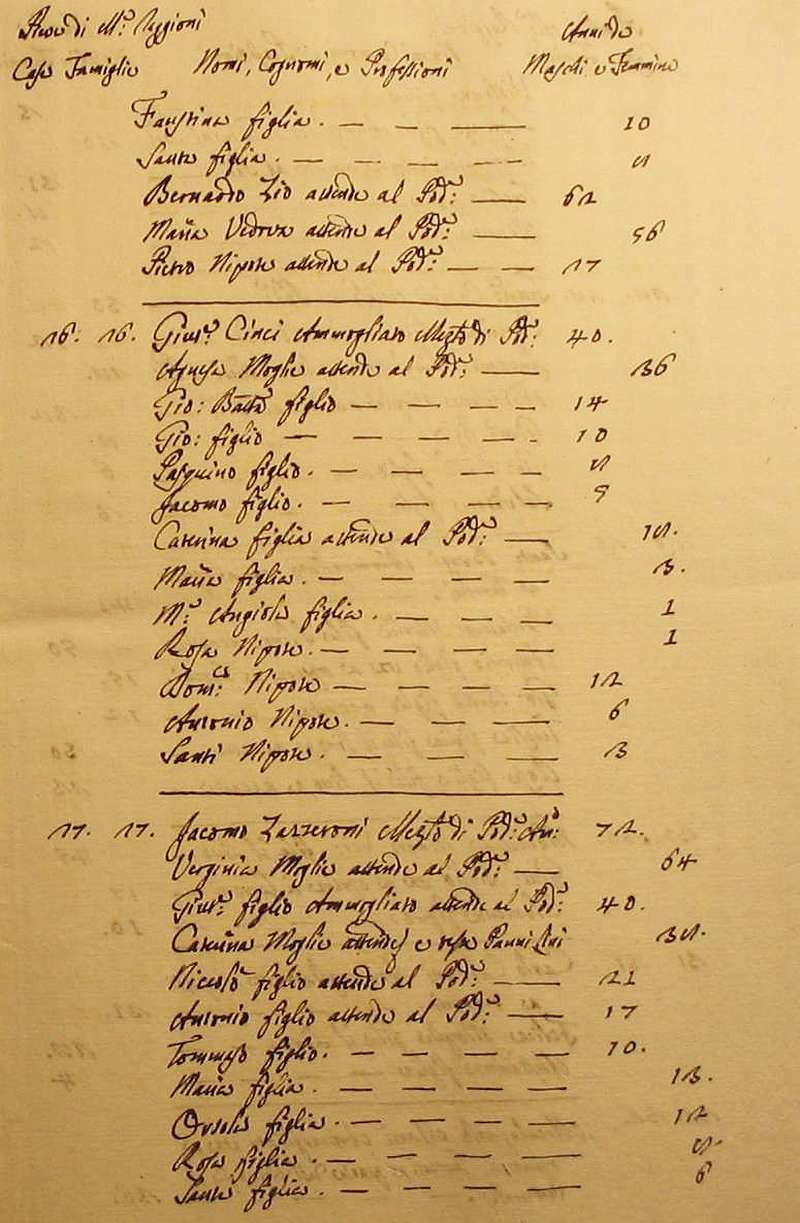 Case Famiglie Nomi, Cognomi, e Professioni Maschi e Femmine
Faustina figlia. 10
Santa figlia.
Bernardo Zio attende al Pod.e 62
Maria Vedova attende al Pod.e 56
Pietro Nipote attende al Pod.e 17
16. 16. Gius.e Cinci Ammogliato Mezz.o di Pod.e 40.
Agnesa Moglie attende al Pod.e 36
Gio: Batta figlio 14
Gio: figlio 10
Pasquino figlio.
Jacomo figlio.
Caterina figlia attende al Pod.e
Maria figlia. 3.
M.a Angiola figlia. 1
Rosa Nipote. 1
Dom.co Nipote 12
Antonio Nipote. 6
Santi Nipote. 3
17. 17. Jacomo Zazzeroni Mezz.o di Pod.e 72.
Verginia Moglie attende al Pod.e 64
Gius.e figlio Ammogliato attende al Pod.e 40.
Caterina Moglie attende e tesse Panni Lini
Niccolò figlio attende al Pod.e 21
Antonio figlio attende al Pod.e 17
Tommaso figlio. 10.
Maria figlia. 13.
Orsola figlia. 12
Rosa figlia.
Santa figlia. 6